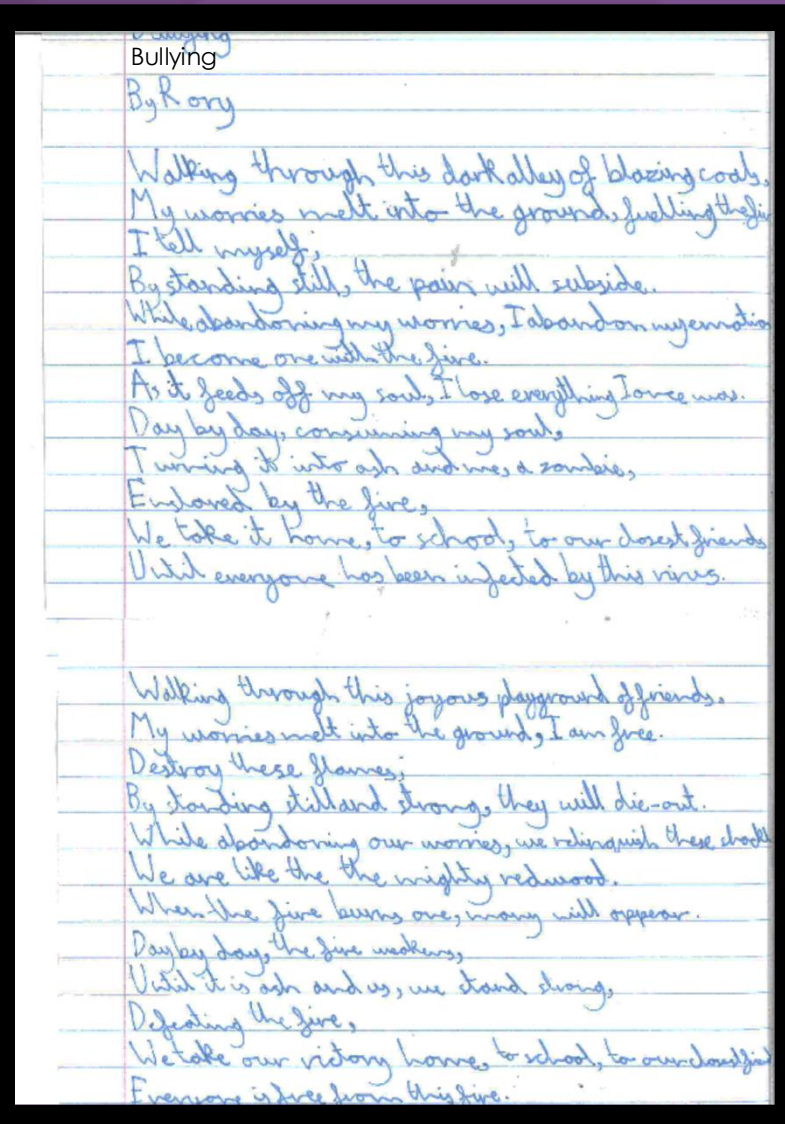 Bullying
Bullying
By Rory
Walking through this dark alley of blazing coals,
My worries melt into the ground, fuelling the fi
I tell myself;
By standing still, the pain will subside.
While abandoning my worries, I abandon my emotion
I become one with the fire.
As it feeds off my soul, I lose everything I once was.
Day by day, consuming my soul,
Turning it into ash and me, a zombie,
Enslaved by the fire,
We take it home, to school, to our closest friends
Until everyone has been infected by this virus.
Walking through this joyous playground of friends.
My worries melt into the ground, I am free.
Destroy these flames;
By standing still and strong, they will die-out.
While abandoning our worries, we relinquish these shackl
We are like the the mighty redwood.
When the fire burns one, many will appear.
Day by day, the fire weakens,
Until it is ash and us, we stand strong,
Defeating the fire,
We take our victory home, to school, to our closest fri
Everyone is free from this fire.